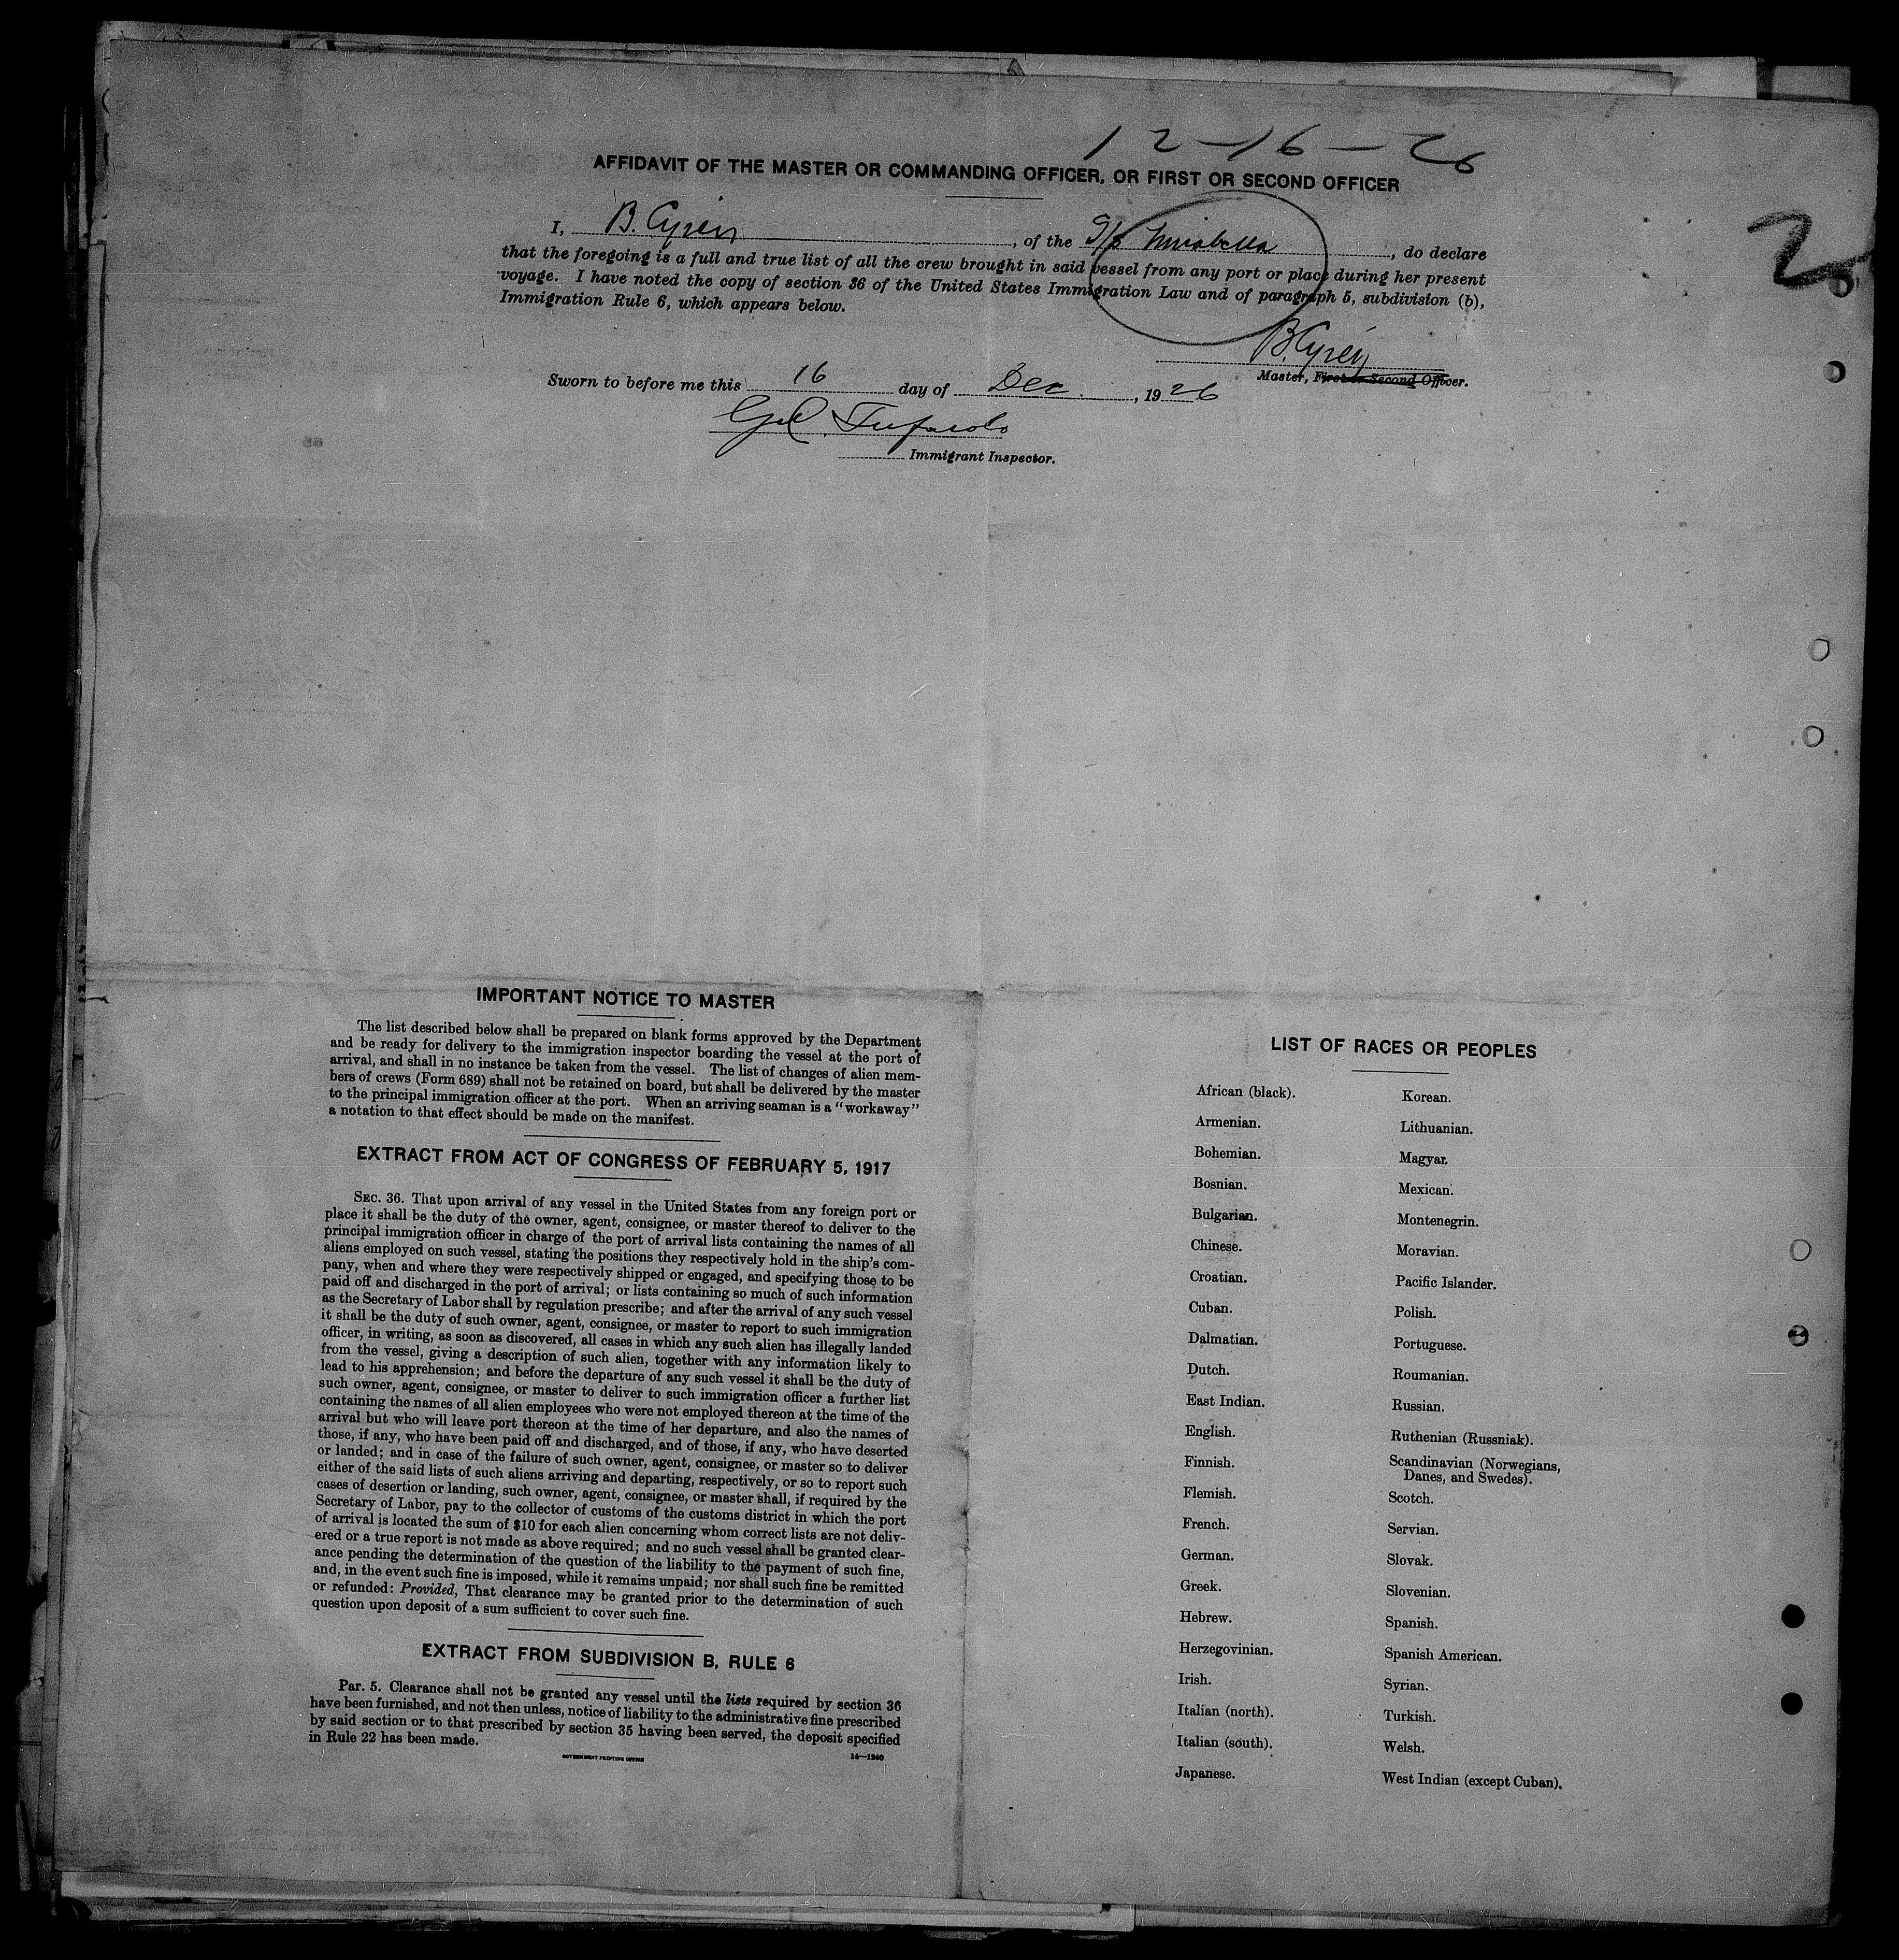 12-16-26
AFFIDAVIT OF THE MASTER OR COMMANDING OFFICER, OR FIRST OR SECOND OFFICER
2
I, B. , of the S/S Mirabella, do declare
that the foregoing is a full and true list of all the crew brought in said vessel from any port or place during her present
voyage. I have noted the copy of section 36 of the United States Immigration Law and of paragraph 5, subdivision (b),
Immigration Rule 6, which appears below.
B.
Master, First or Second Officer.
Sworn to before me this 16 day of Dec. , 1926
Immigrant Inspector.
IMPORTANT NOTICE TO MASTER
The list described below shall be prepared on blank forms approved by the Department
and be ready for delivery to the immigration inspector boarding the vessel at the port of
arrival, and shall in no instance be taken from the vessel. The list of changes of alien mem-
bers of crews (Form 689) shall not be retained on board, but shall be delivered by the master
to the principal immigration officer at the port. When an arriving seaman is a "workaway"
a notation to that effect should be made on the manifest.
EXTRACT FROM ACT OF CONGRESS OF FEBRUARY 5, 1917
SEC. 36. That upon arrival of any vessel in the United States from any foreign port or
place it shall be the duty of the owner, agent, consignee, or master thereof to deliver to the
principal immigration officer in charge of the port of arrival lists containing the names of all
aliens employed on such vessel, stating the positions they respectively hold in the ship's com-
pany, when and where they were respectively shipped or engaged, and specifying those to be
paid off and discharged in the port of arrival; or lists containing so much of such information
as the Secretary of Labor shall by regulation prescribe; and after the arrival of any such vessel
it shall be the duty of such owner, agent, consignee, or master to report to such immigration
officer, in writing, as soon as discovered, all cases in which any such alien has illegally landed
from the vessel, giving a description of such alien, together with any information likely to
lead to his apprehension; and before the departure of any such vessel it shall be the duty of
such owner, agent, consignee, or master to deliver to such immigration officer a further list
containing the names of all alien employees who were not employed thereon at the time of the
arrival but who will leave port thereon at the time of her departure, and also the names of
those, if any, who have been paid off and discharged, and of those, if any, who have deserted
or landed; and in case of the failure of such owner, agent, consignee, or master so to deliver
either of the said lists of such aliens arriving and departing, respectively, or so to report such
cases of desertion or landing, such owner, agent, consignee, or master shall, if required by the
Secretary of Labor, pay to the collector of customs of the customs district in which the port
of arrival is located the sum of $10 for each alien concerning whom correct lists are not deliv-
ered or a true report is not made as above required; and no such vessel shall be granted clear-
ance pending the determination of the question of the liability to the payment of such fine,
and, in the event such fine is imposed, while it remains unpaid; nor shall such fine be remitted
or refunded: Provided, That clearance may be granted prior to the determination of such
question upon deposit of a sum sufficient to cover such fine.
EXTRACT FROM SUBDIVISION B, RULE 6
Par. 5. Clearance shall not be granted any vessel until the lists required by section 36
have been furnished, and not then unless, notice of liability to the administrative fine prescribed
by said section or to that prescribed by section 35 having been served, the deposit specified
in Rule 22 has been made.
GOVERNMENT PRINTING OFFICE 14—1240
LIST OF RACES OR PEOPLES
African (black).
Armenian.
Bohemian.
Bosnian.
Bulgarian.
Chinese.
Croatian.
Cuban.
Dalmatian.
Dutch.
East Indian.
English.
Finnish.
Flemish.
French.
German.
Greek.
Hebrew.
Herzegovinian.
Irish.
Italian (north).
Italian (south).
Japanese.
Korean.
Lithuanian.
Magyar.
Mexican.
Montenegrin.
Moravian.
Pacific Islander.
Polish.
Portuguese.
Roumanian.
Russian.
Ruthenian (Russniak).
Scandinavian (Norwegians,
Danes, and Swedes).
Scotch.
Servian.
Slovak.
Slovenian.
Spanish.
Spanish American.
Syrian.
Turkish.
Welsh.
West Indian (except Cuban).